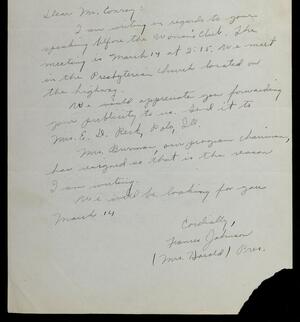 Dear Mr. Conroy:
I am writing in regards to your
speaking before the Woman's Club. The
meeting is March 14 at 2:15. We meet
in the Presbyterian Church located on
the highway.
We would appreciate you forwarding
your publicity to us. Send it to
Mrs. E. D. Polo, Ill.
Mrs. our program chairman,
has resigned so that is the reason
I am writing.
We will be looking for you
March 14
Cordially,
Frances Johnson
(Mrs. Harold) Pres.